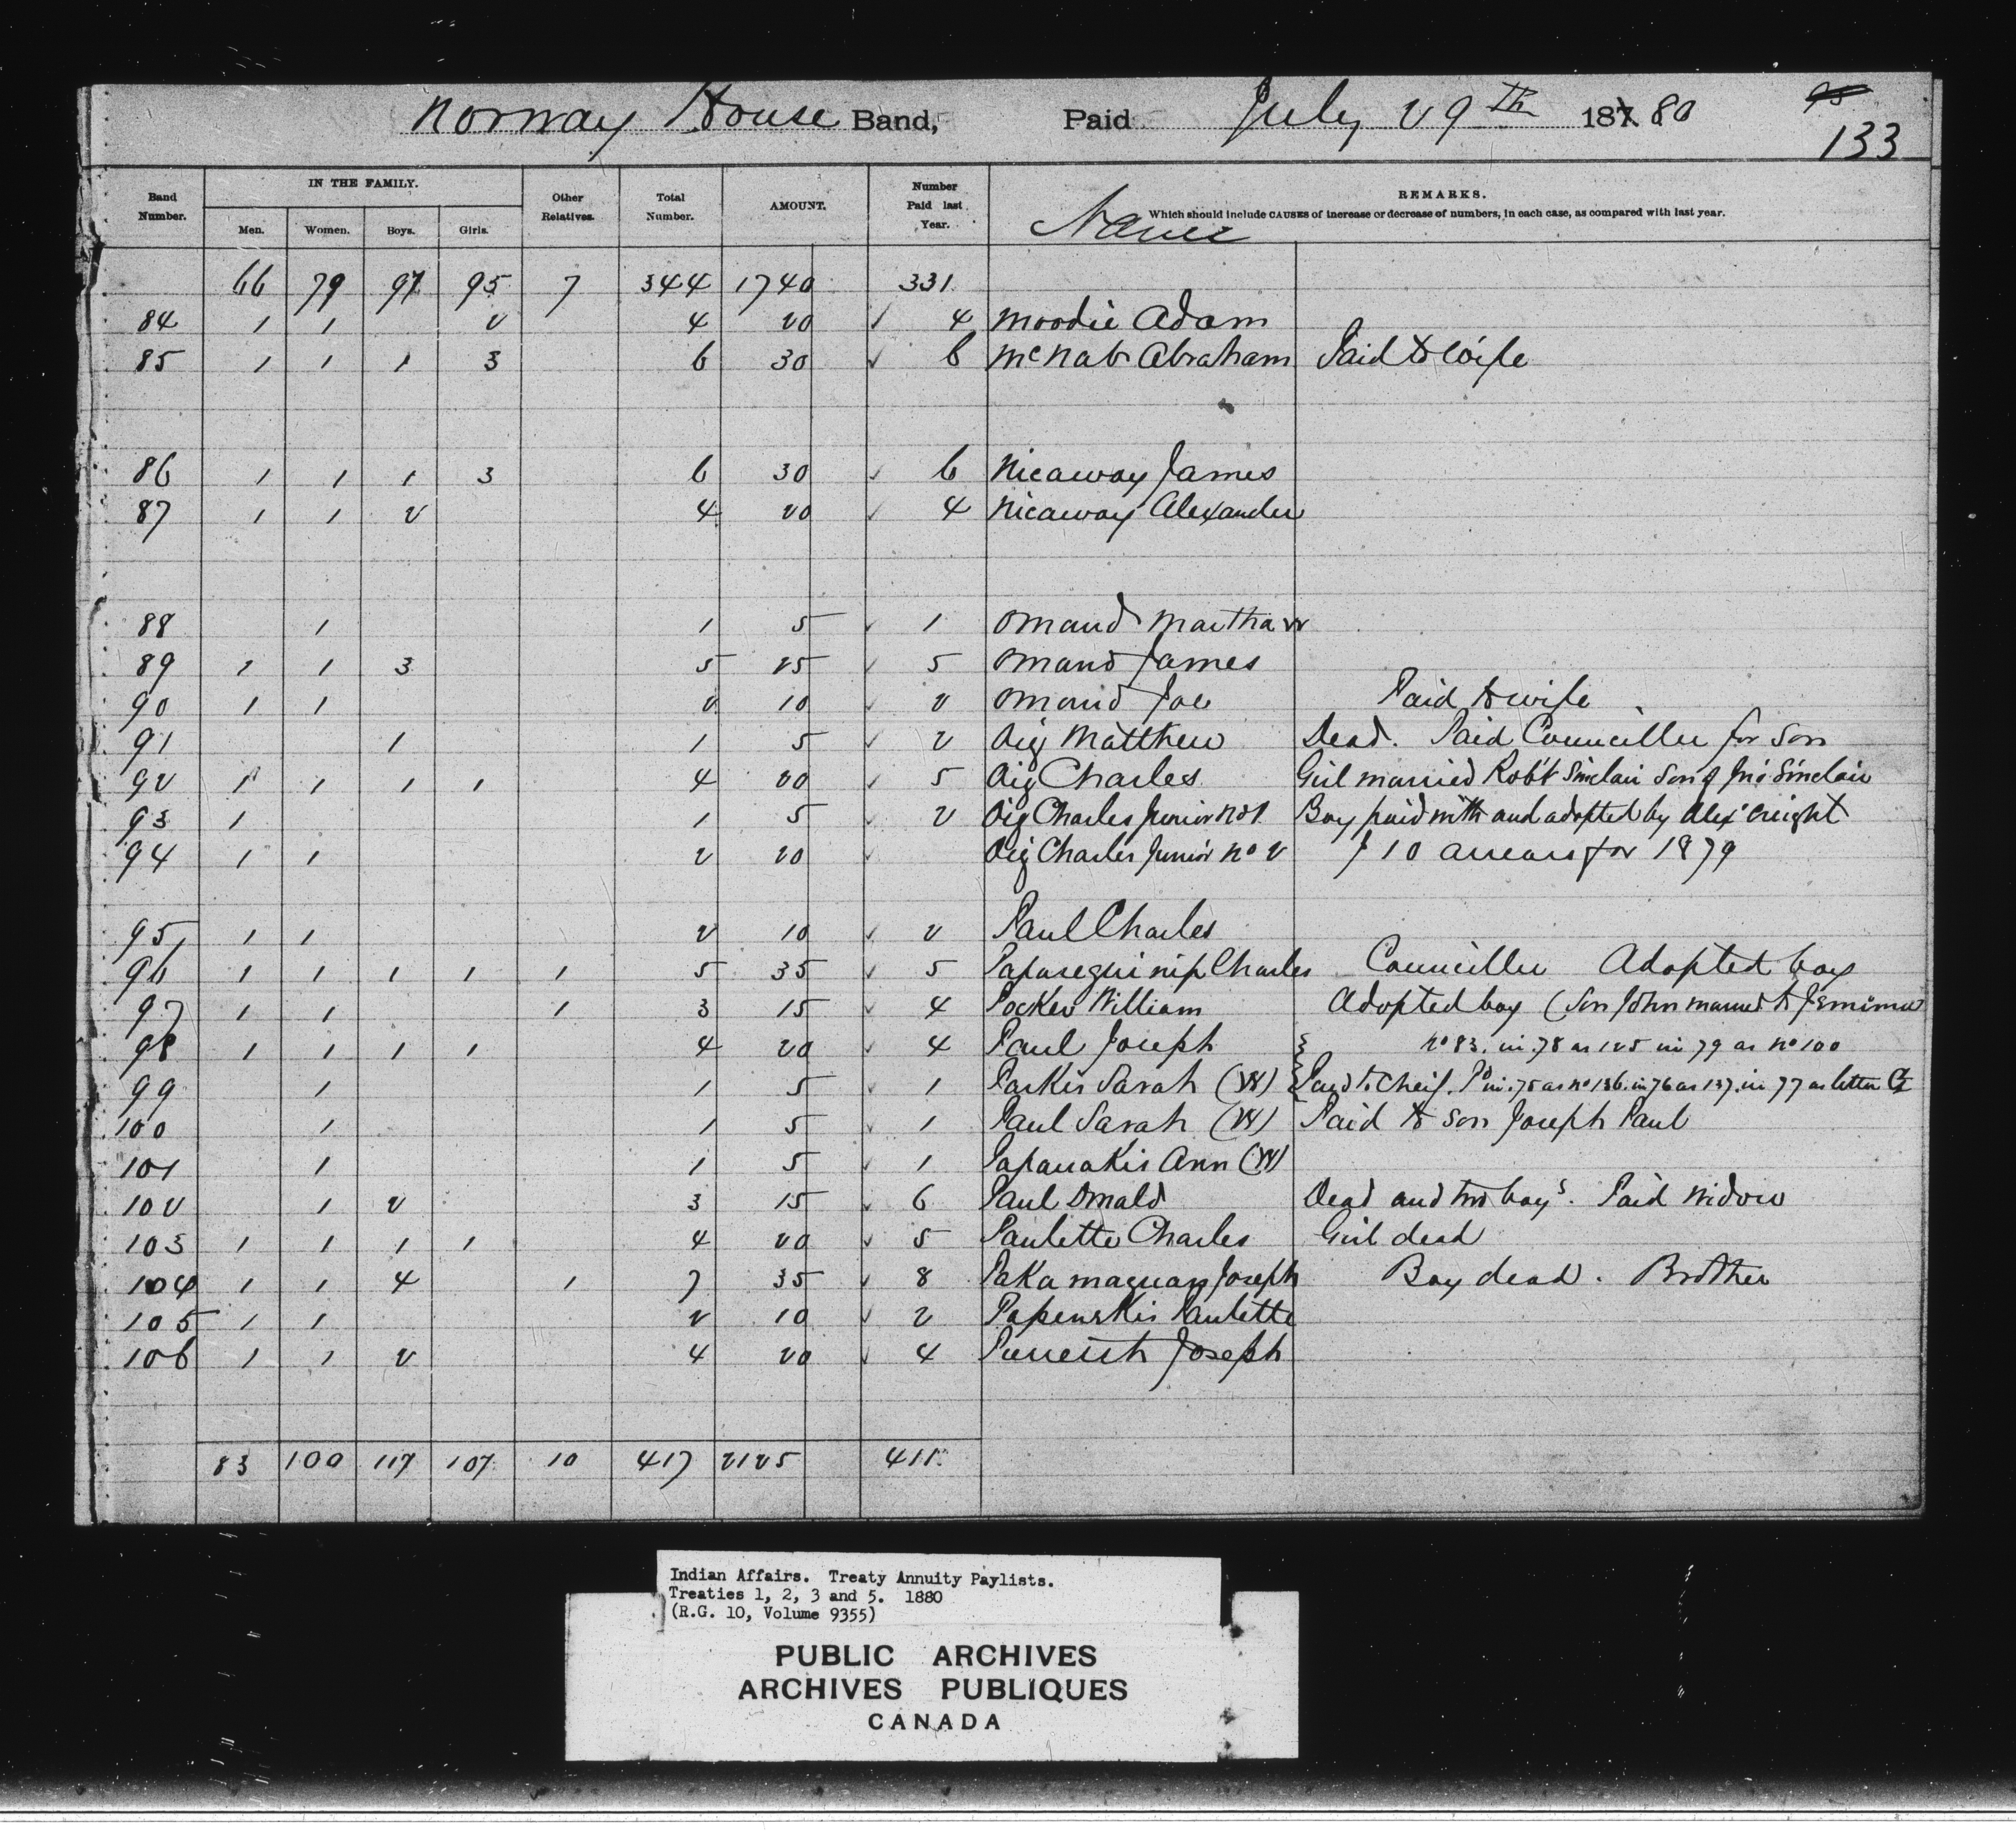 Norway House Band, Paid July 29th 1880
95
133
Band Number. IN THE FAMILY. Men. Women. Boys. Girls. Other Relatives. Total Number. AMOUNT. Number Paid last Year. Name REMARKS. Which should include CAUSES of increase or decrease of numbers, in each case, as compared with last year.
66 79 97 95 7 344 1740 331
84 1 1 2 4 20 ✓ 4 Moodie Adam
85 1 1 1 3 6 30 ✓ 6 McNab Abraham Paid to Wife
86 1 1 1 3 6 30 ✓ 6 Nicaway James
87 1 1 2 4 20 ✓ 4 Nicaway Alexander
88 1 1 5 ✓ 1 Omand Martha W
89 1 1 3 5 25 ✓ 5 Omand James
90 1 1 2 10 ✓ 2 Omand Joe Paid to wife
91 1 1 5 ✓ 2 Oig Matthew Dead. Paid Counciller for Son
92 1 1 1 1 4 20 ✓ 5 Oig Charles Girl married Robt Sinclair Son of Jno Sinclair
93 1 1 5 ✓ 2 Oig Charles Junior No 1 Boy paid with and adopted by Alex
94 1 1 2 20 ✓ Oig Charles Junior No 2 $10 arrears for 1879
95 1 1 2 10 ✓ 2 Paul Charles
96 1 1 1 1 1 5 35 ✓ 5 Charles Counciller Adopted boy
97 1 1 1 3 15 ✓ 4 William Adopted boy (Son John married to Jemima
98 1 1 1 1 4 20 ✓ 4 Paul Joseph No 83. in 78 as 125 in 79 as No 100
99 1 1 5 ✓ 1 Paskis Sarah (W) Paid to Cheif. Pd in 75 as No 136. in 76 as 137. in 77 as letter
100 1 1 5 ✓ 1 Paul Sarah (W) Paid to Son Joseph Paul
101 1 1 5 ✓ 1 Papanakis Ann (W)
102 1 2 3 15 ✓ 6 Paul Donald Dead and two boys. Paid Widow
103 1 1 1 1 4 20 ✓ 5 Paulette Charles Girl dead
104 1 1 4 1 7 35 ✓ 8 Joseph Boy dead. Brother
105 1 1 2 10 ✓ 2 Paulette
106 1 1 2 4 20 ✓ 4 Joseph
83 100 117 107 10 417 2125 411
Indian Affairs. Treaty Annuity Paylists.
Treaties 1, 2, 3 and 5. 1880
(R.G. 10, Volume 9355)
PUBLIC ARCHIVES
ARCHIVES PUBLIQUES
CANADA